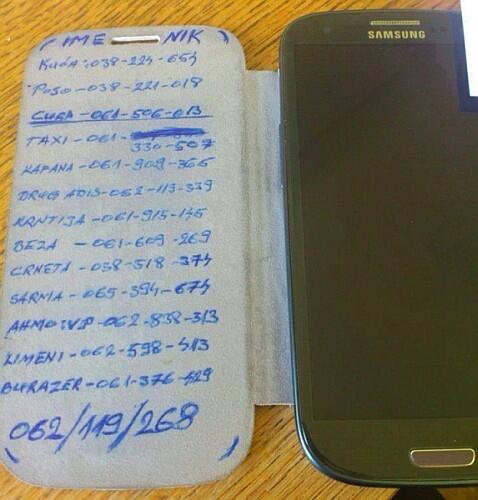 IMENIK
KUĆA: 038-224-654
POSO - 038-221-018
CUGA - 061-506-013
TAXI - 061-
330-507
KAPANA - 061-909-366
DRUG ADIS - 062-113-339
KRNTIJA - 061-915-145
BEZA - 061-609-269
CRNETA - 038-518-374
SARMA - 065-394-674
AHMO:VP - 062-838-313
LIMENI - 062-598-413
BURAZER - 061-376-429
062/119/268
SAMSUNG